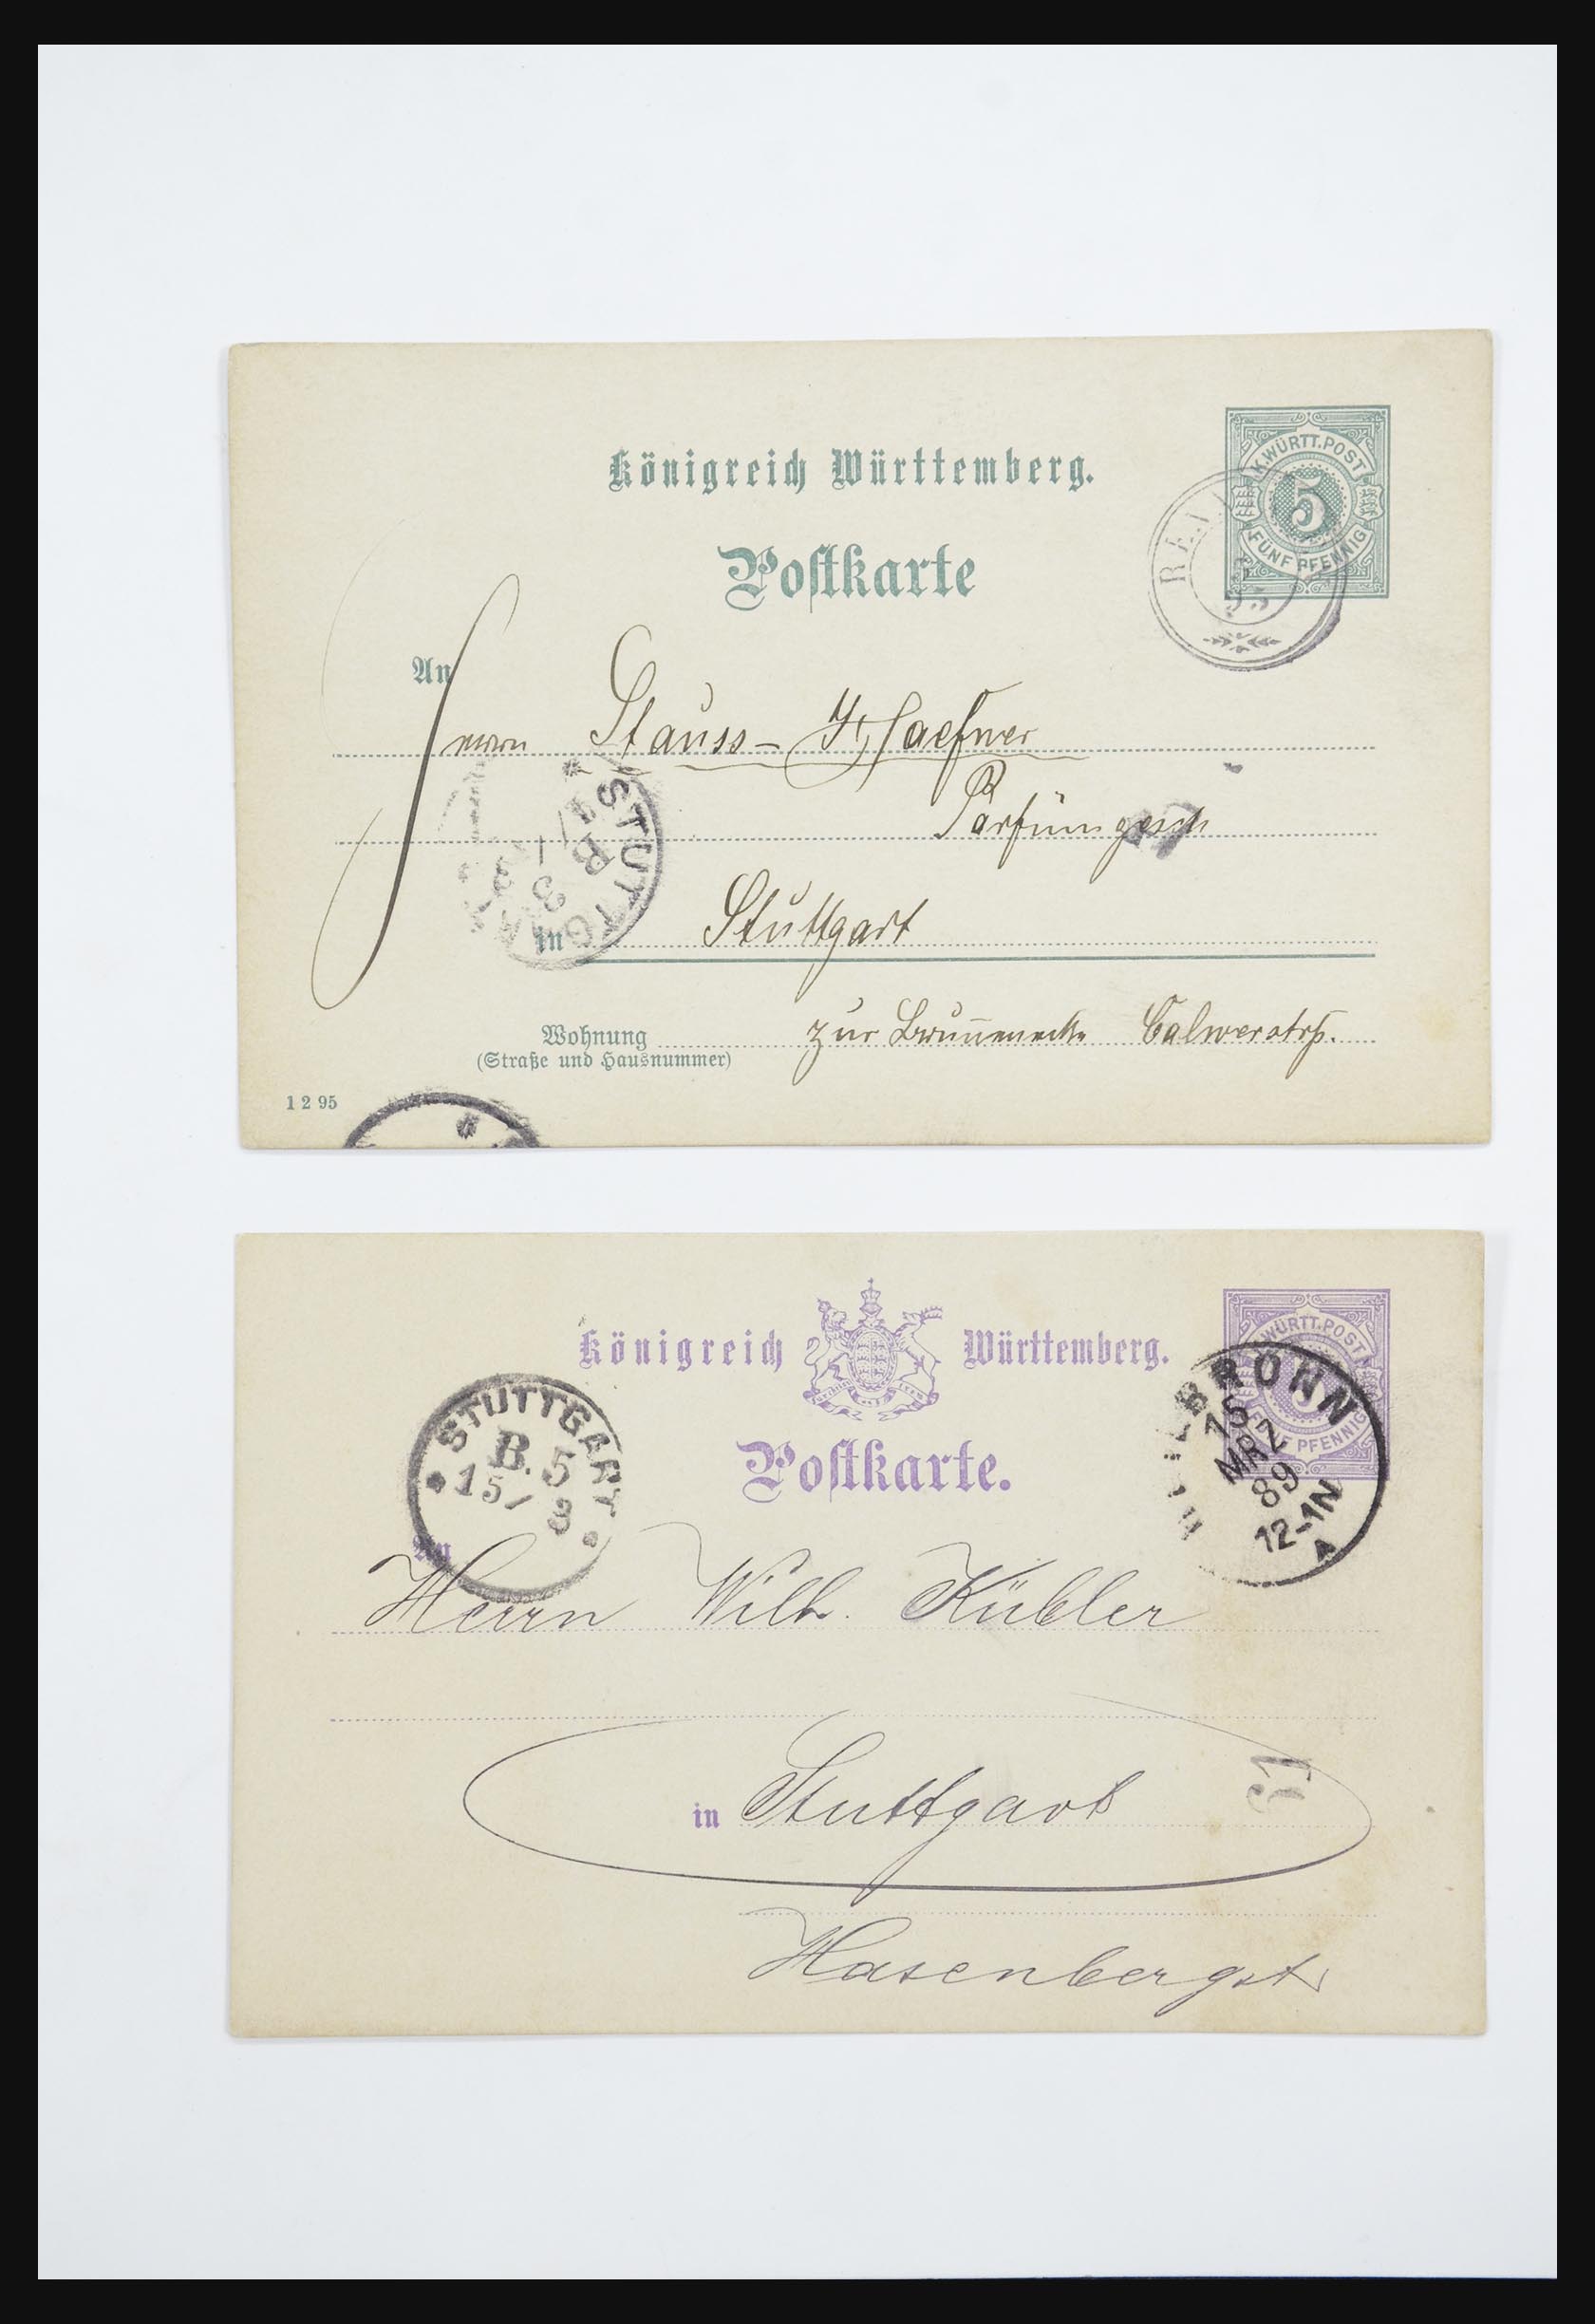 Königreich Württemberg.
K. WÜRTT. POST
5
FÜNF PFENNIG
Postkarte
An
Stauss - Haefner
Parfümgesch
STUTTGART
B
3
in Stuttgart
Wohnung zur Brunnenecke Calwerstrß.
(Straße und Hausnummer)
1 2 95
Königreich Württemberg.
K. WÜRTT. POST
5
FÜNF PFENNIG
HEILBRONN
15
MRZ
89
12-1N
A
STUTTGART
B. 5
15/3
Postkarte.
An
Herrn Wilh. Kübler
in Stuttgart
61
Hasenbergstr